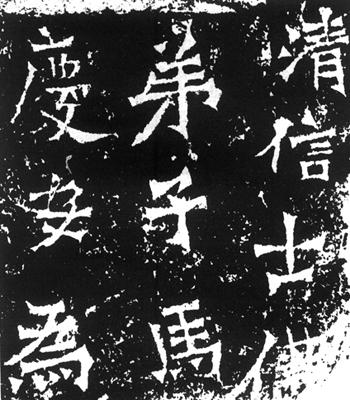 清信士佛
弟子馬
慶安為